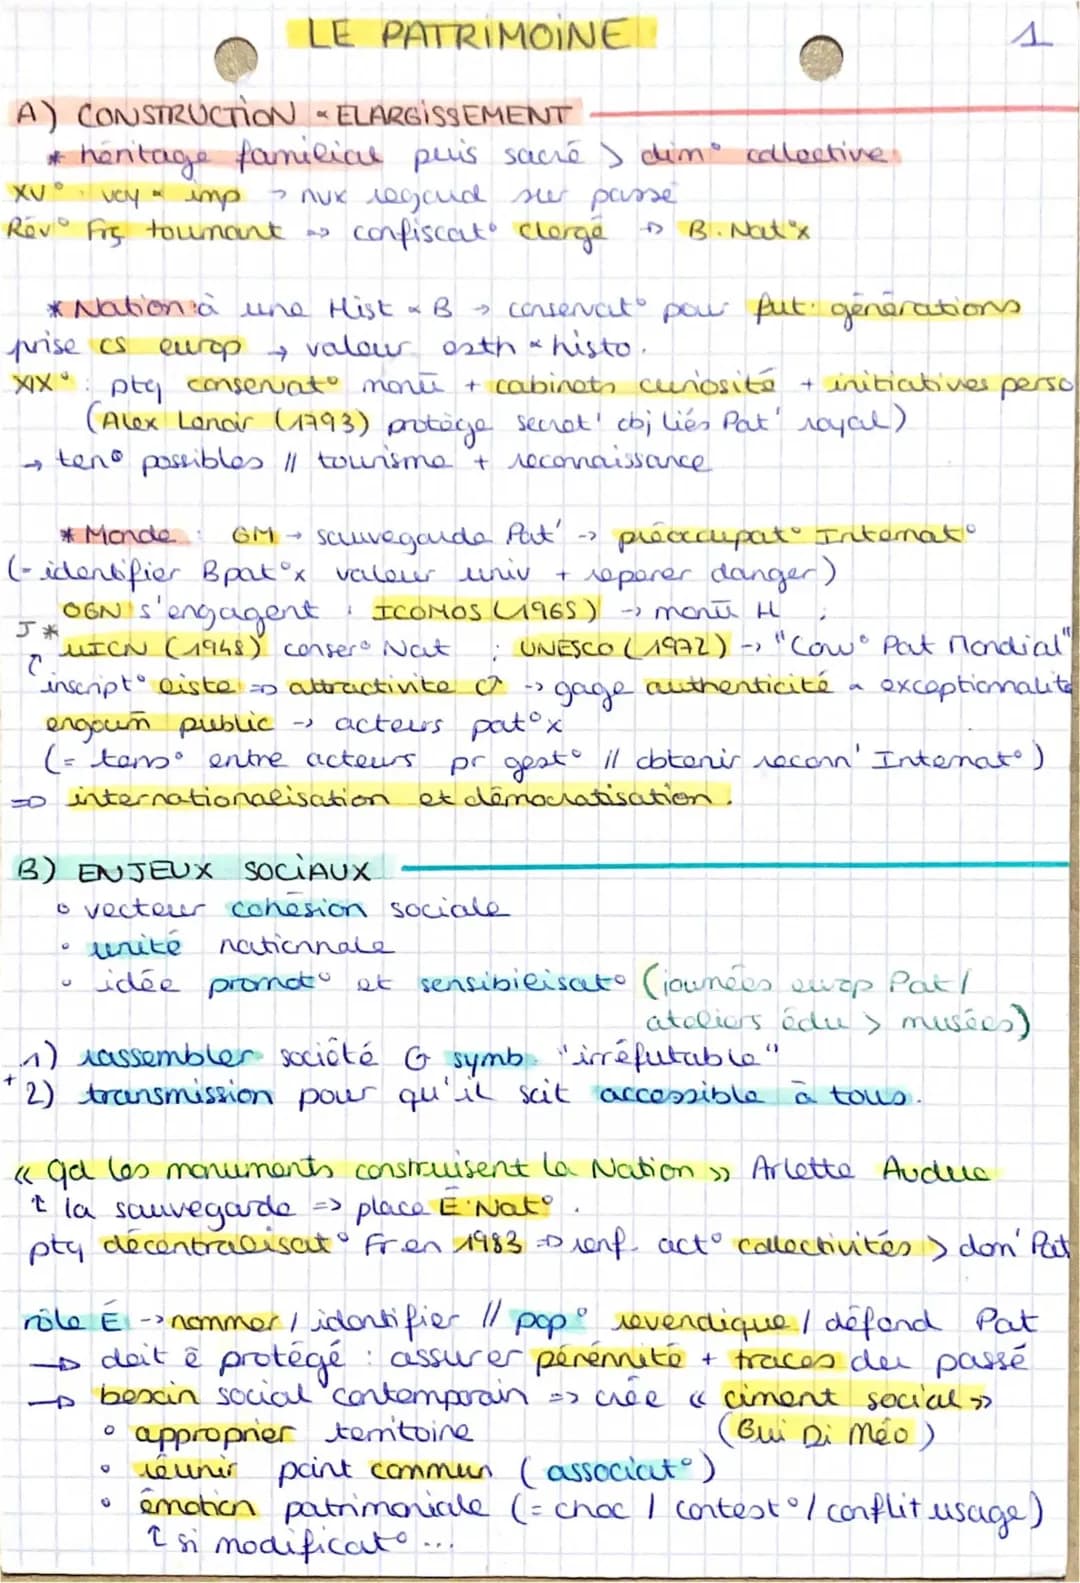 LE PATRIMOINE
1
A) CONSTRUCTION & ELARGISSEMENT
* héritage familial puis sacré > dim° collective
XV° : voy & imp → nvx regard sur passé
Rév° Frç tournant => confiscat° clergé → B. Nat°x
* Nation : à une Hist & B → conservat° pour fut. générations
prise cs europ → valeur esth & histo.
XIX° : ptq conservat° monū + cabinets curiosité + initiatives perso
(Alex Lenoir (1793) protège secret' obj liés Pat' royal)
→ ten° possibles // tourisme + reconnaissance
* Monde : GM → sauvegarde Pat' -> préoccupat° Internat°
(- identifier Bpat°x valeur univ + reperer danger)
OGN s'engagent : ICOMOS (1965) -> monū H ;
J * UICN (1948) conser° Nat ; UNESCO (1972) -> "Conv° Pat Mondial"
↑ inscript° liste => attractivité ↗ -> gage authenticité & exceptionnalité
engoum̄ public -> acteurs pat°x
(= tens° entre acteurs pr gest° // obtenir reconn' Internat°)
=> internationalisation et démocratisation.
B) ENJEUX SOCIAUX
• vecteur cohésion sociale
• unité nationnale
• idée promot° et sensibilisat° (journées europ Pat /
ateliers édu > musées)
1) rassembler société G symb "irréfutable"
+ 2) transmission pour qu'il soit accessible à tous.
« qd les monuments construisent la Nation » Arlette Auduc
↑ la sauvegarde => place É. Nat°.
ptq décentralisat° Fr en 1983 => renf. act° collectivités > don' Pat
rôle É -> nommer / identifier // pop° revendique / défend Pat
→ doit ê protégé : assurer pérénnité + traces du passé
→ besoin social contemporain => crée « ciment social »
• approprier territoire (Gui Di Méo)
• réunir point commun (associat°)
• émotion patrimoniale (= choc / contest° / conflit usage)
↑ si modificat° ...